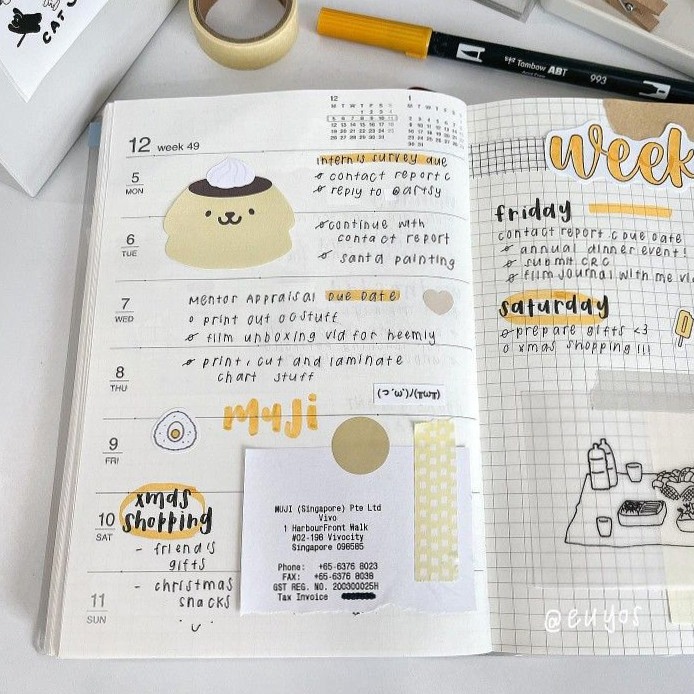 CAT
Tombow ABT
993
12
1
M T W T F S S
12 week 49
5
MON
interns survey due
contact report c
reply to @artsy
6
TUE
continue with
contact report
santa painting
7
WED
Mentor Appraisal due date
print out oo stuff
film unboxing vid for heemly
8
THU
print, cut and laminate
chart stuff
muji
9
FRI
MUJI (Singapore) Pte Ltd
Vivo
1 HarbourFront Walk
#02-198 Vivocity
Singapore 098585
Phone: +65-6376 8023
FAX: +65-6376 8038
GST REG. NO. 200300025H
Tax Invoice
10
SAT
xmas
shopping
- friend's
gifts
11
SUN
- christmas
snacks
week
friday
contact report c due date
annual dinner event!
submit CRC
film journal with me vid
saturday
prepare gifts <3
xmas shopping !!!
@euyos